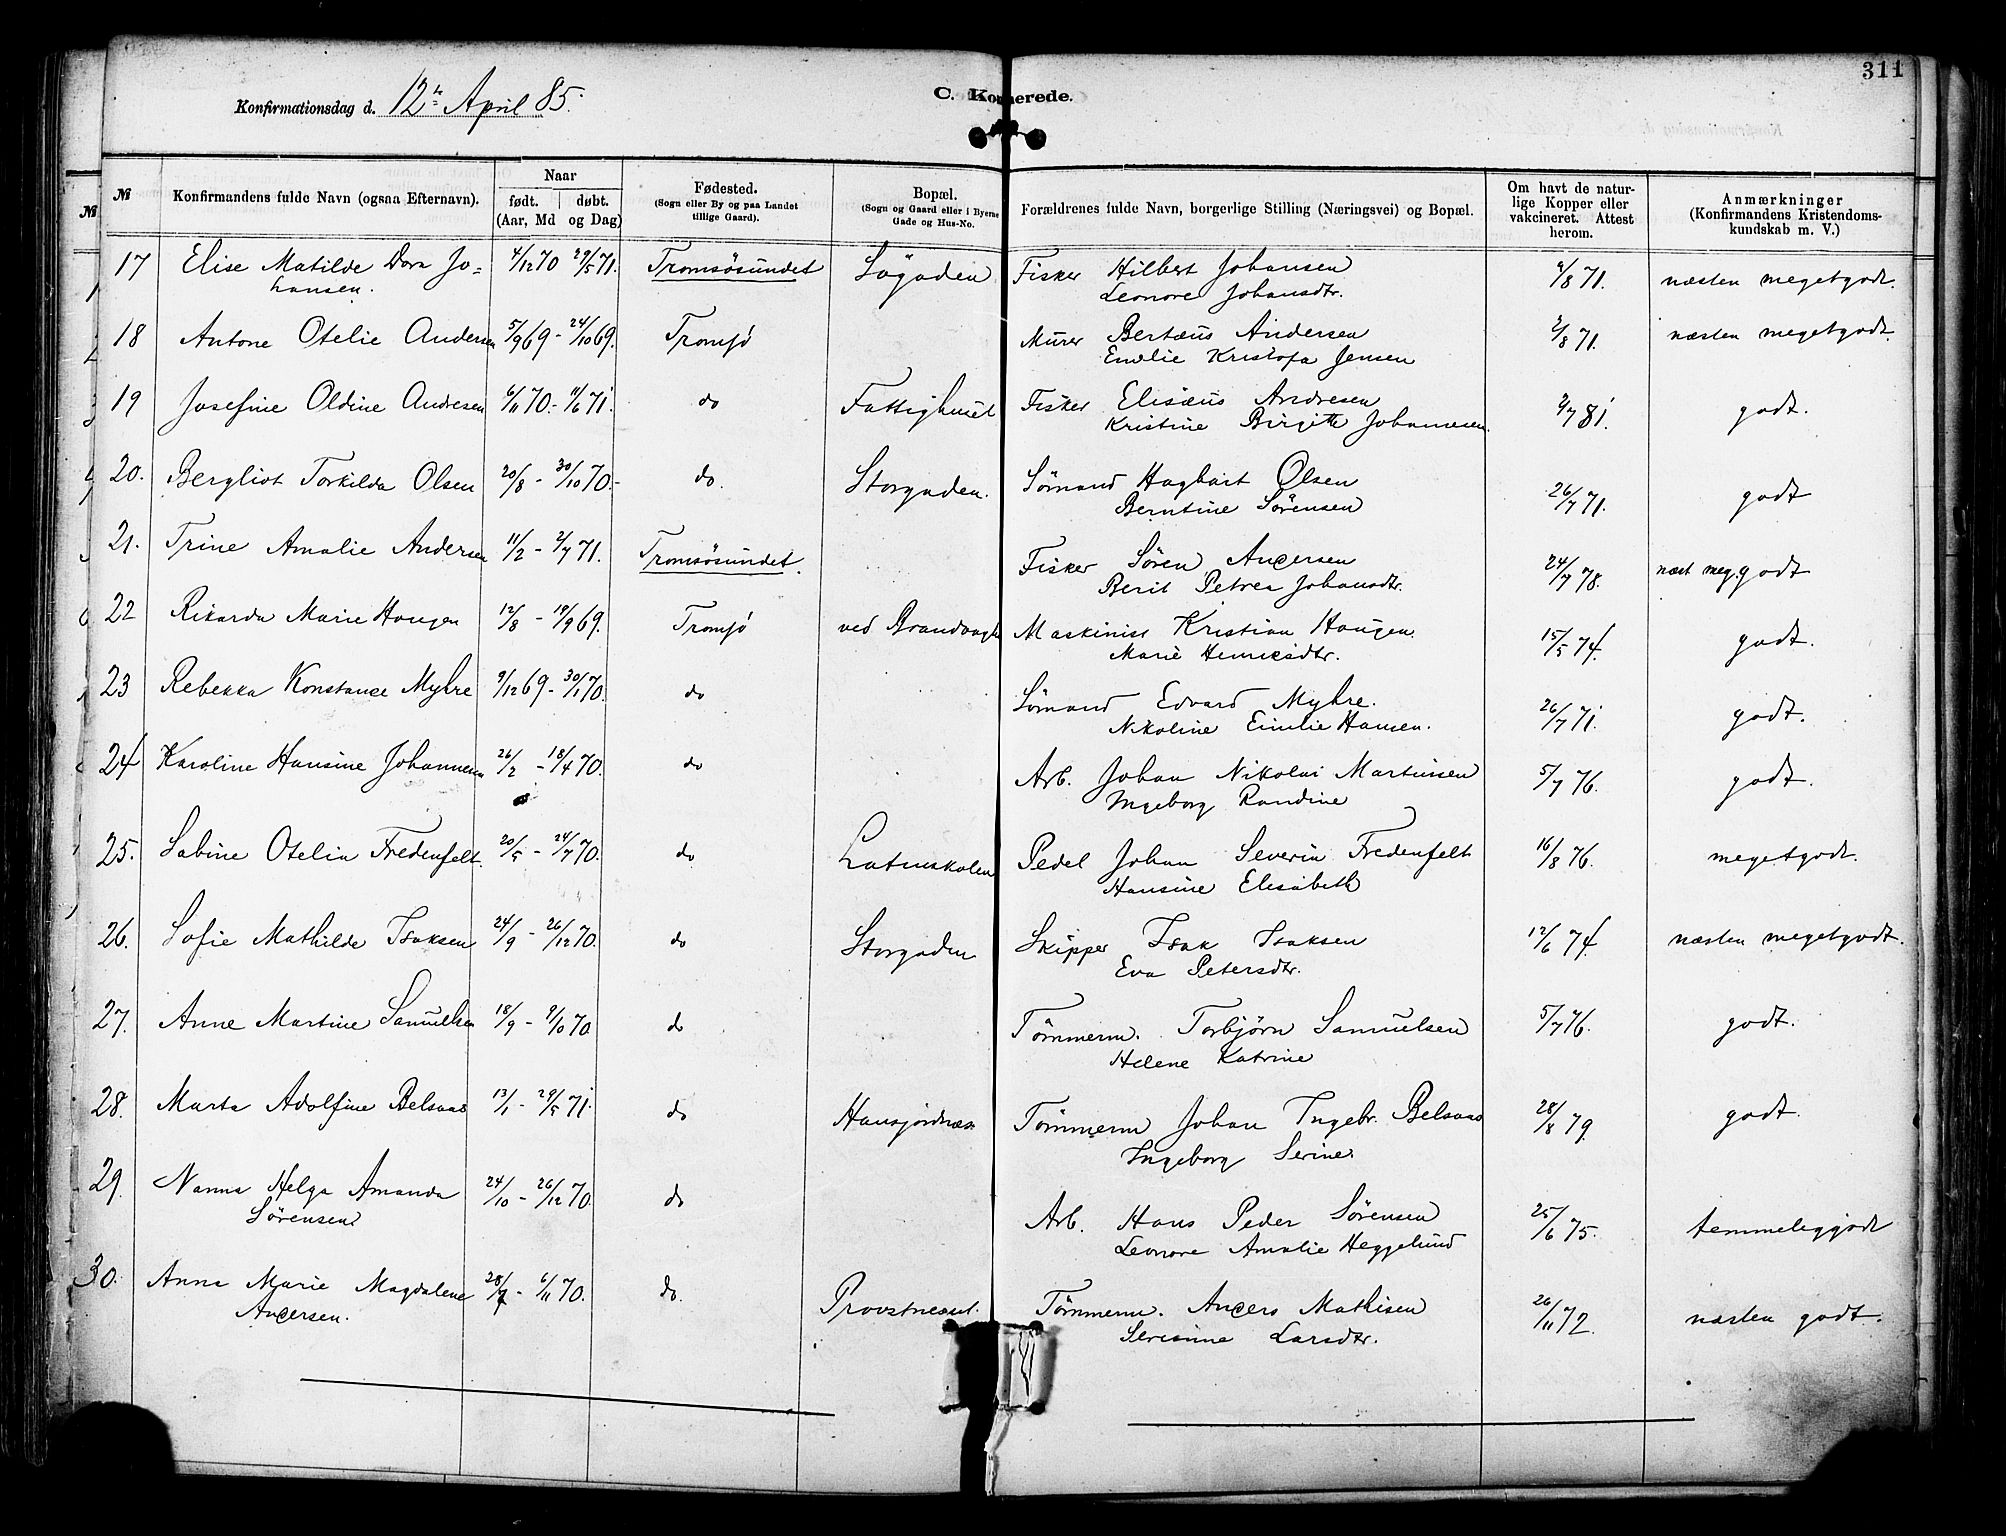 311
Konfirmationsdag d. 12te April 85.
C. Ko merede.
№ Konfirmandens fulde Navn (ogsaa Efternavn). Naar født. døbt. (Aar, Md og Dag) Fødested. (Sogn eller By og paa Landet tillige Gaard). Bopæl. (Sogn og Gaard eller i Byerne Gade og Hus-No. Forældrenes fulde Navn, borgerlige Stilling (Næringsvei) og Bopæl. Om havt de naturlige Kopper eller vakcineret. Attest herom. Anmærkninger (Konfirmandens Kristendomskundskab m. V.)
17 Elise Matilde Dora Jo= 4/12 70 29/5 71. Tromsösundet Sögaden Fisker Hilbert Johansen 2/8 71. næsten megetgodt.
hansen. Leonore Johansdtr.
18 Antone Otelie Andersen 5/9 69 - 24/10 69. Tromsø Murer Bertæus Andersen 2/8 71. næsten megetgodt.
Emelie Kristofa Jensen
19 Josefine Oldine Andresen 6/11 70. - 11/6 71. do Fattighuset Fisker Elisæus Andresen 2/7 81. godt.
Kristine Birgitte Johannesen.
20. Bergliot Torkilda Olsen 20/8 - 30/10 70. - do. Storgaden. Sömand Hagbart Olsen 26/7 71. godt
Berntine Sörensen
21. Trine Amalie Andersen 11/2 - 2/7 71. Tromsösundet. Fisker Sören Andersen 24/7 78. næst meg. godt
Berit Petrea Johansdtr.
22 Rikarda Marie Haugen 12/8 - 19/9 69. Tromsø ved Brandvagt Maskinist Kristian Haugen 15/5 74. godt.
Marie Henriksdtr.
23 Rebekka Konstance Myhre 9/12 69 - 30/1 70. do Sömand Edvard Myhre. 26/7 71. godt.
Nikoline Emilie Hansen.
24 Karoline Hansine Johannesen 26/2 - 18/4 70. do Arb. Johan Nikolai Martinsen 5/7 76. godt.
Ingeborg Randine
25. Sabine Otelia Fredenfelt. 20/5 - 24/7 70. do Latinskolen Pedel Johan Severin Fredenfelt 16/8 76. megetgodt.
Hansine Elisabeth
26. Sofie Mathilde Isaksen 24/9 - 26/12 70. do Storgaden Skipper Isak Isaksen 12/6 74. næsten megetgodt.
Eva Petersdtr.
27. Anne Martine Samuelsen 18/9 - 9/10 70. do Tömmerm. Torbjörn Samuelsen 5/7 76. godt.
Helene Katrine
28. Marta Adolfine Belsaas 13/1 - 29/5 71. do Hansjordnæs. Tömmerm Johan Ingebr. Belsaas 28/8 79. godt.
Ingeborg Serine.
29. Nanna Helga Amanda 24/10 - 26/12 70. do Arb. Hans Peder Sörensen 25/6 75. temmeliggodt
Sörensen Leonore Amalie Heggelund
30. Anna Marie Magdalene 28/7 - 6/11 70. do. Provstneset. Tömmerm. Anders Mathisen 26/11 72. næsten godt.
Andersen. Larsdtr.